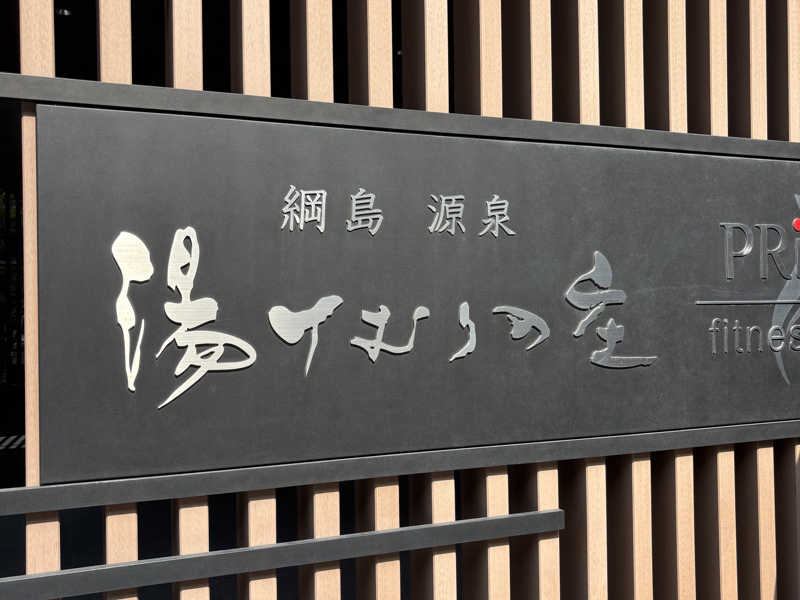 綱島 源泉
湯けむりの庄
PRi
fitnes